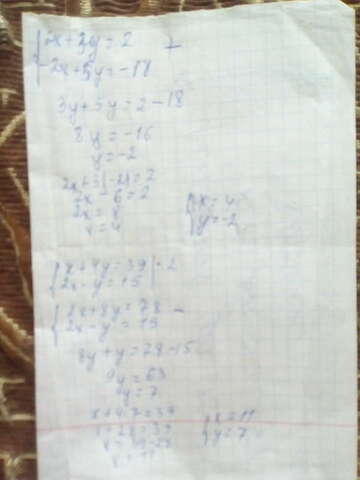 {2x+3y=2 +
{-2x+5y=-18
3y+5y=2-18
8y=-16
y=-2
2x+3(-2)=2
2x-6=2
2x=8
x=4
{x=4
{y=-2
{x+4y=39 |·2
{2x-y=15
{2x+8y=78 -
{2x-y=15
8y+y=78-15
9y=63
y=7
x+4·7=39
x+28=39
x=39-28
x=11
{x=11
{y=7